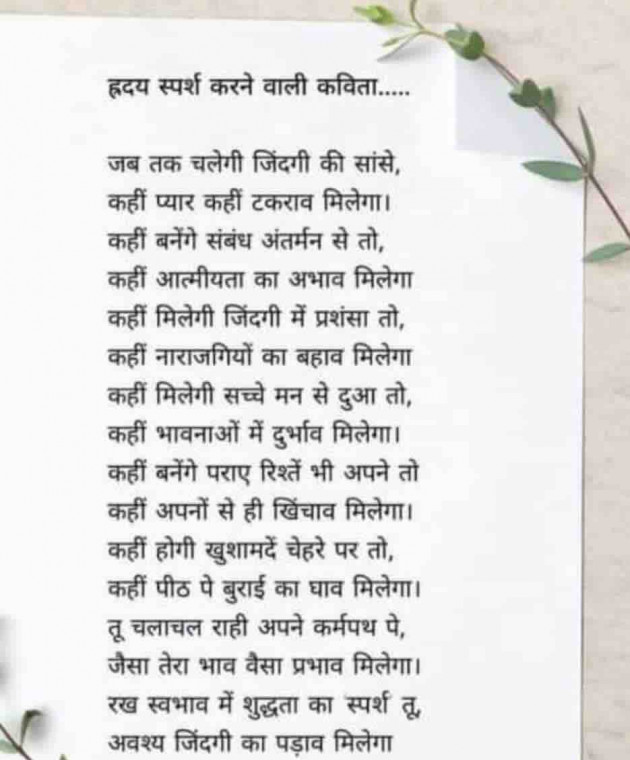 ह्रदय स्पर्श करने वाली कविता.....
जब तक चलेगी जिंदगी की सांसे,
कहीं प्यार कहीं टकराव मिलेगा।
कहीं बनेंगे संबंध अंतर्मन से तो,
कहीं आत्मीयता का अभाव मिलेगा
कहीं मिलेगी जिंदगी में प्रशंसा तो,
कहीं नाराजगियों का बहाव मिलेगा
कहीं मिलेगी सच्चे मन से दुआ तो,
कहीं भावनाओं में दुर्भाव मिलेगा।
कहीं बनेंगे पराए रिश्तें भी अपने तो
कहीं अपनों से ही खिंचाव मिलेगा।
कहीं होगी खुशामदें चेहरे पर तो,
कहीं पीठ पे बुराई का घाव मिलेगा।
तू चलाचल राही अपने कर्मपथ पे,
जैसा तेरा भाव वैसा प्रभाव मिलेगा।
रख स्वभाव में शुद्धता का स्पर्श तू,
अवश्य जिंदगी का पड़ाव मिलेगा